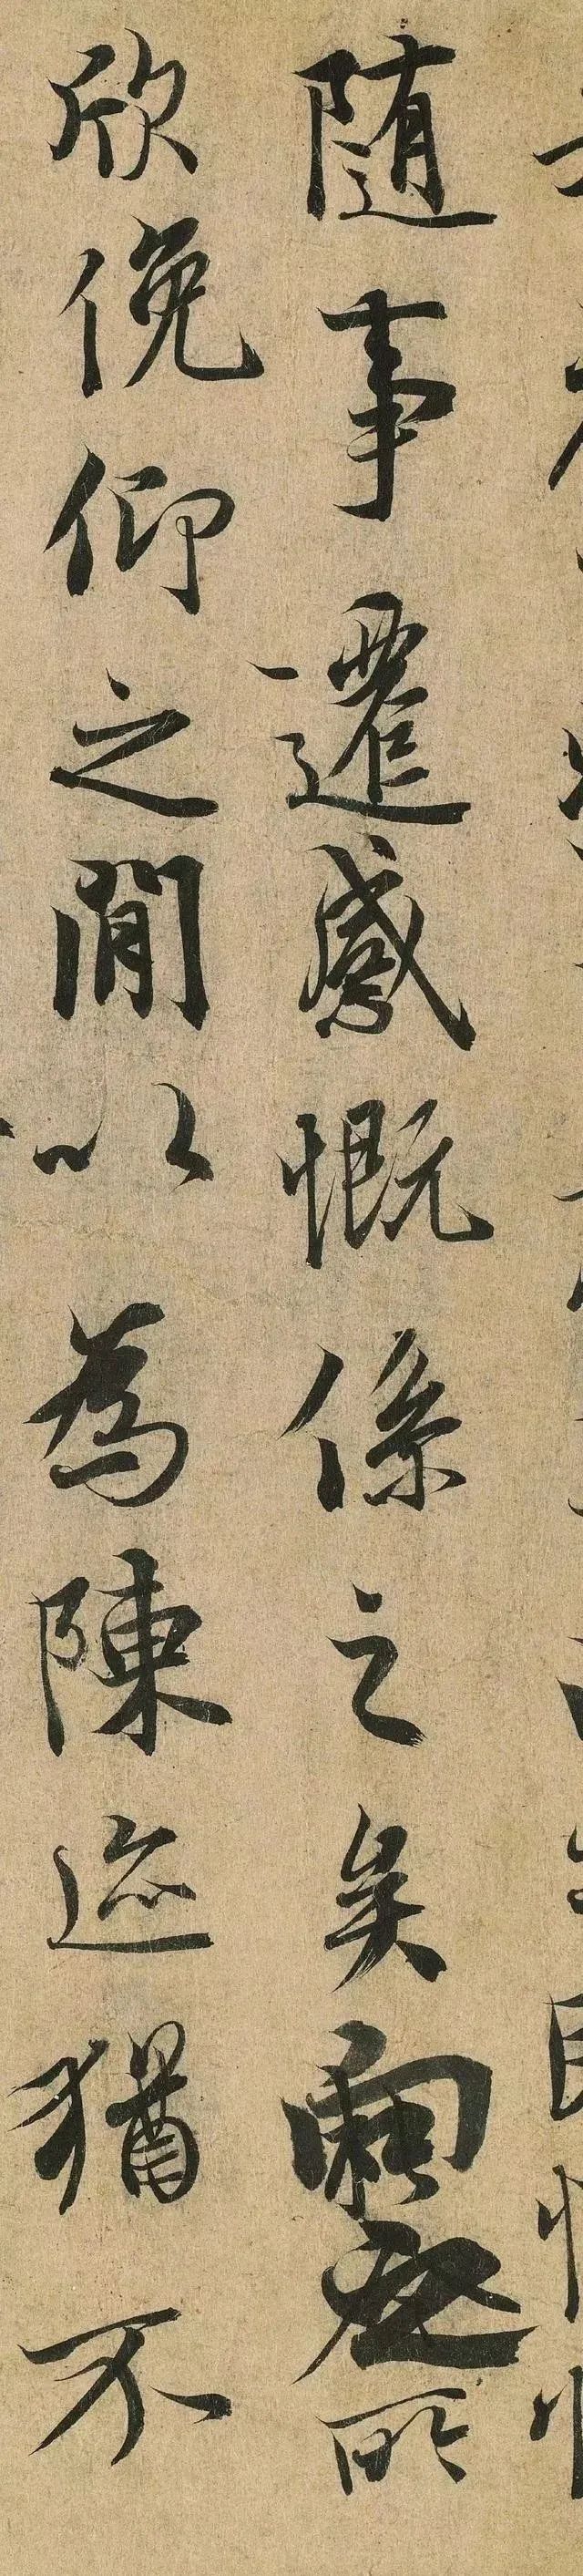 随事遷感慨係之矣向之所
欣俛仰之閒以為陳迹猶不